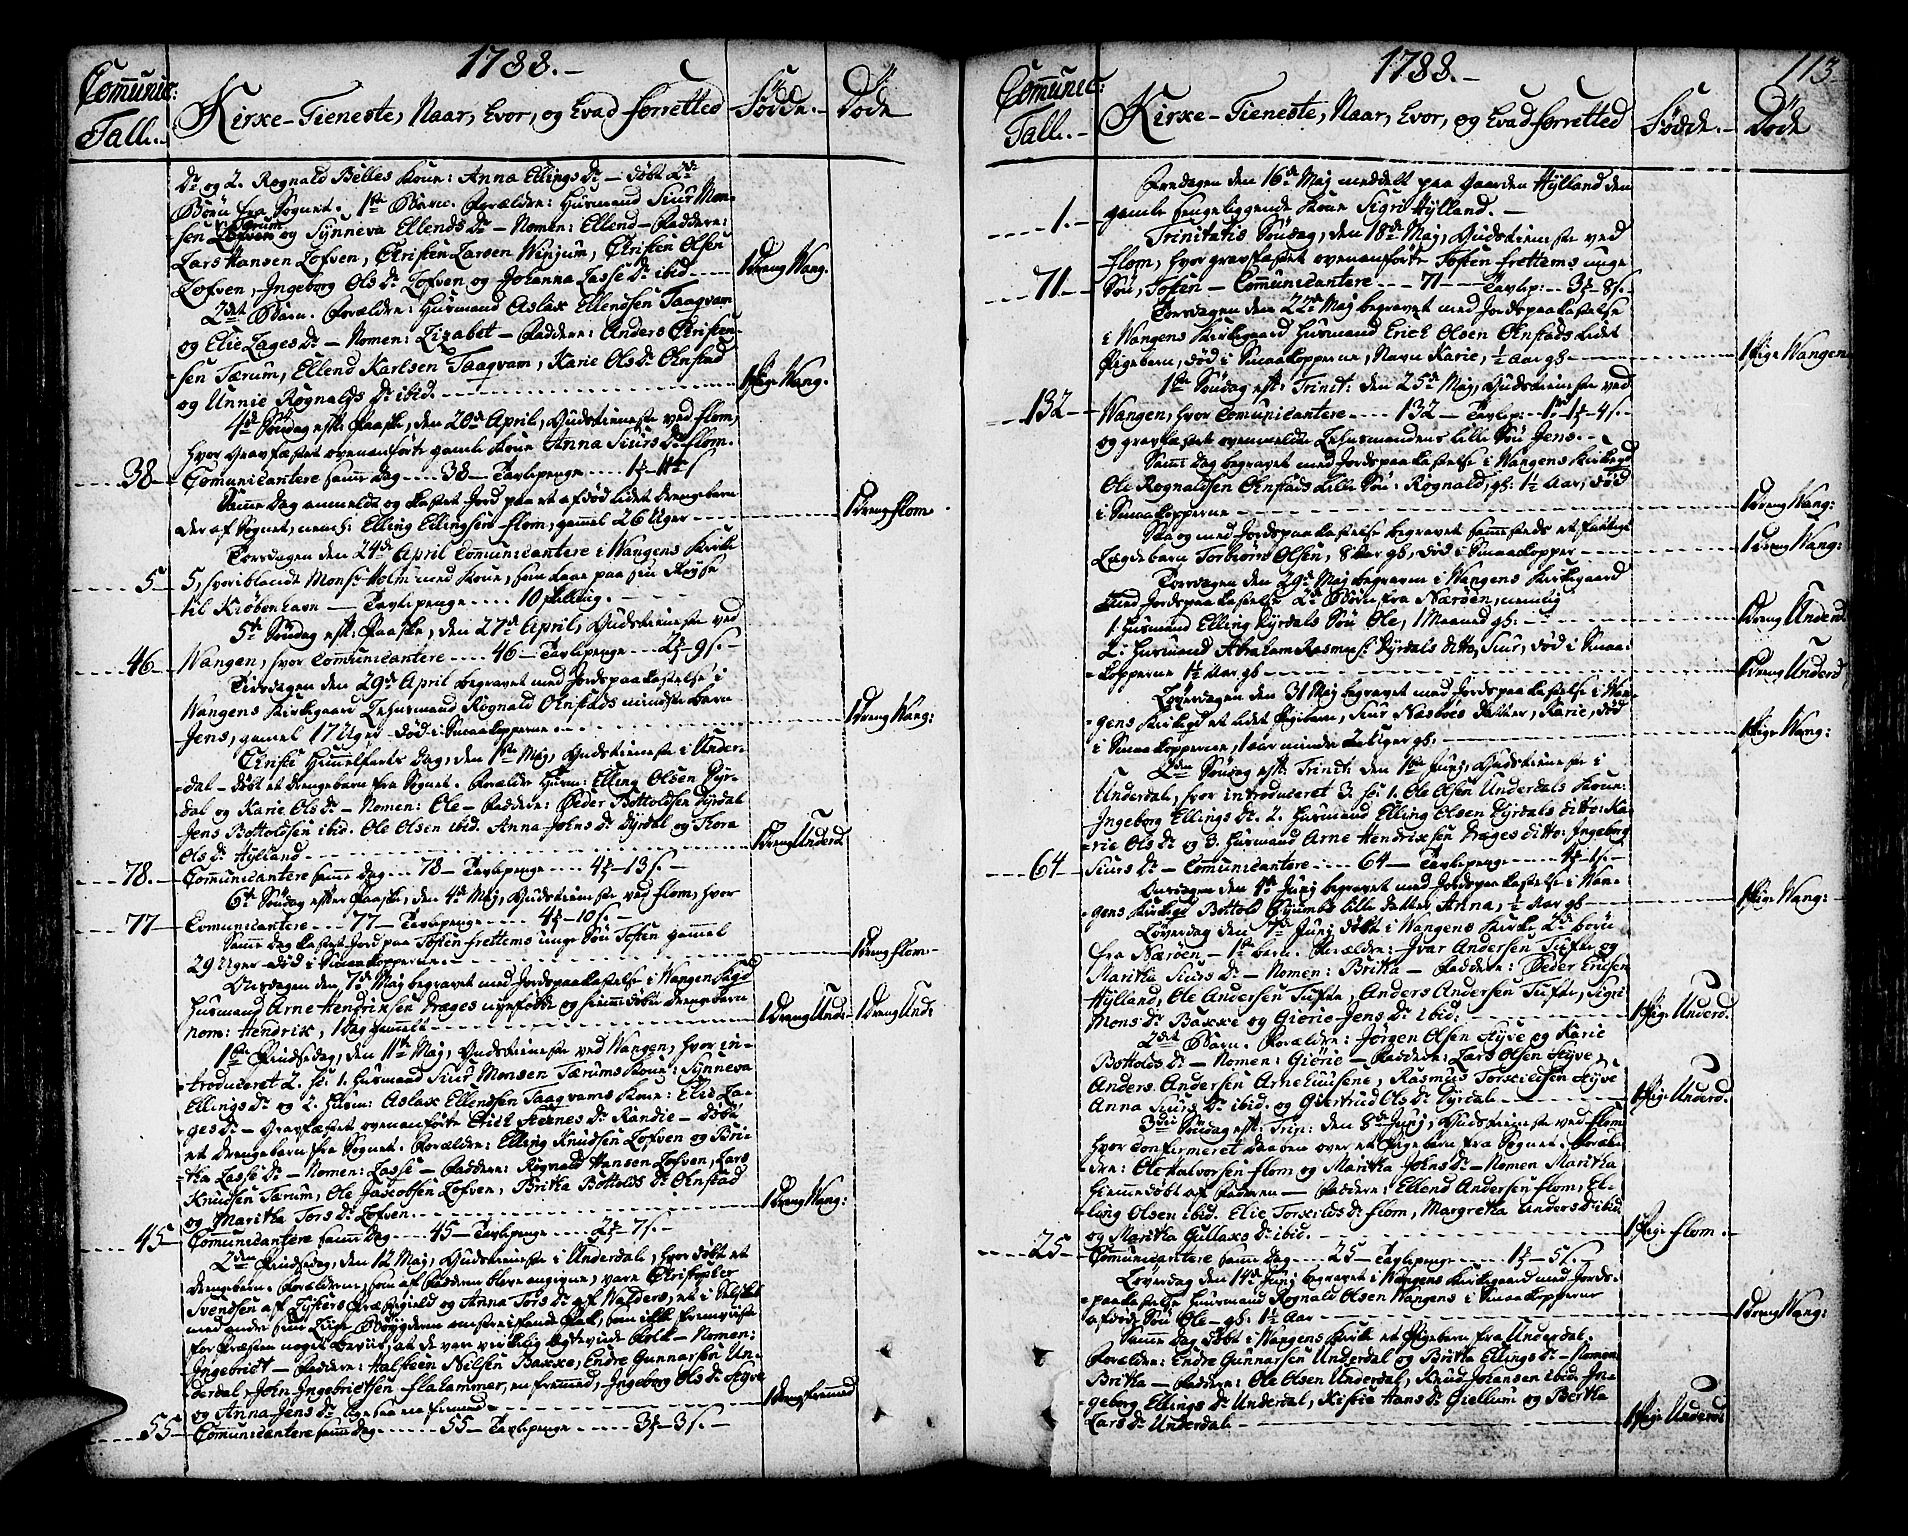 1788.-
Comunic:
Tall.-
Kirke-Tieneste, Naar, Hvor, og Hvad forretted
Födde.-
Döde
Dr og 2. Rognald Belles Kone: Anna Ellings Dr - döbt 2de
Börn fra Sognet. 1ste Barn. Forældre: Husmand Siur Mon-
sen Tærum og Synneva Ellends Dr - Nomen: Ellend - Faddere:
Lars Hansen Løfven, Christen Larsen Winjum, Christen Olsen
Løfven, Ingeborg Ols Dr Løfven og Johanna Lasse Dr ibid
1 Dreng Wang.
2det Barn. Forældre: Husmand Aslak Ellendsen Taagvam
og Elie Lages Dr - Nomen: Lizabet - Faddere: Anders Christen-
sen Tærum, Ellend Karlsen Taagvam, Karie Ols Dr Ohnstad
og Unnie Rognalds Dr ibid.
1 Pige Wang.
4de Söndag eft: Paaske, den 20de April, Gudstieneste ved flom,
hvor Gravfæstet ovenanförte gamle Kone Anna Siurs Dr flom.
38 - Comunicantere samme dag - 38 - Tavlepenge
Samme Dag anmeldt og kastet Jord paa et afdöd lidet Drengebarn
der af Sognet, neml: Elling Ellingsens flom, gammel 26 Uger
1 Dreng flom
Torsdagen den 24de April Comunicantere i Wangens Kirke
5 - 5, hvoriblandt Monsr Holm med Kone, som leave paa sin Reyse
til Kiöbenhavn - Tavlepenge .... 10 skilling.
5te Söndag eft: Paaske, den 27de April, Gudstieneste ved
46 - Wangen, hvor Comunicantere .... 46 - Tavlepenge .... 2 - 9 s.
Tirsdagen den 29de April begravet med Jordspaakastelse i
Wangens Kirkegaard Lehnsmand Rognald Ohnstads mindste barn
Jens, gamel 17 Uger - död i Smaakopperne.
1 Dreng Wang:
Christi Himmelfarts Dag, den 1ste Maj, Gudstieneste i Under-
dal - döbt et drengebarn fra Sognet. Forældre Husm: Elling Olsen Dyr-
dal og Karie Ols Dr - Nomen: Ole - Faddere: Peder Bottoldsen Dyrdal
Jens Bottoldsen ibid. Ole Olsen ibid. Anna Johns Dr Dyrdal og Thora
Ols Dr Hylland
1 Dreng Underd
78. - Comunicantere samme dag .... 78 - Tavlepenge .... 4 - 13 s.
6te Söndag efter Paaske, den 4de Maj, Gudstieneste ved flom, hvor
77 - Comunicantere .... 77 - Tavlepenge .... 4 - 10 s.
Samme dag kastet Jord paa Tosten frettems unge Sön Tosten gammel
29 Uger - död i Smaakopperne.
1 Dreng flom
Onsdagen den 7de Maj begravet med Jordspaakastelse i Wangens Kirkegd
Husmand Arne Hendriksen Drages nyfödde og hiemmedöbte drengebarn
nom: Hendrik, 1 dag gammelt
1 Dreng Und: 1 Dreng Und:
1ste Pindsedag, den 11te Maj, Gudstieneste ved Wangen, hvor in-
troduceret 2. sc: 1. husmand Siur Monsen Tærums Kone: Synneva
Ellings Dr og 2. Husm: Aslak Ellendsen Taagvams Kone: Elie La-
ges Dr - Gravfæstet ovenanförte Erich Hernes Dr Randie - Döbt
et drengebarn fra Sognet. Forældre: Elling Knudsen Løfven og Bri-
tha Lasse Dr - Nomen: Lasse - Faddere: Rognald Hansen Løfven, Lars
Knudsen Tærum, Ole Jacobsen Løfven, Britha Bottolds Dr Ohnstad
og Maritha Tors Dr Løfven.
1 Dreng Wang:
45 - Comunicantere samme Dag .... 45 - Tavlepenge .... 2 - 7 s.
2den Pindsedag, den 12 Maj, Gudstieneste i Underdal, hvor döbt et
drengebarn. Forældrene, som af Fadderne bleve angivne, vare Christopher
Svendsen af Lysters Præstegield og Anna Tors Dr af Walders, et i Selskab
med andre sine Lige Böygderne omstreifende Pak, som ikke fremviiste
for Præsten noget Beviis, at de vare virkelig Ægteviede Folk - Nomen:
Ingebriedt - Faddere: Halsteen Nilsen Bakke, Endre Gunnarsen Un-
derdal, John Ingebrietsen flahammer, en fremmed, Ingeborg Ols Dr Styve
og Anna Jens Dr ligesaa en fremmed
1 Dreng fremmed
55 - Comunicantere samme Dag .... 55 - Tavlepenge .... 3 - 3 s.
1788.-
113
Comunic:
Tall.-
Kirke-Tieneste, Naar, Hvor, og Hvad forretted
Födde.-
Döde
Fredagen den 16de Maj meddelt paa Gaarden Hylland den
1. - gamle sengeliggende Kone Sigri Hylland.
Trinitatis Söndag, den 18de Maj, Gudstieneste ved
flom, hvor gravfæstet ovenanförte Tosten frettems unge
71 - Sön, Tosten - Comunicantere .... 71 - Tavlep: .. 3 - 8 s.
Torsdagen den 22de Maj begravet med Jordspaakastelse
i Wangens Kirkegaard Husmand Erich Olsen Ohnstads lidet
Pigebarn, död i Smaakopperne, Navn Karie, ½ Aar gl.
1 Pige Wangen
1ste Söndag eft: Trinit: den 25de Maj, Gudstieneste ved
132 - Wangen, hvor Comunicantere .... 132 - Tavlep:
og gravfæstet ovenmeldte Lehnsmandens lille Sön Jens.
Samme Dag begravet med Jordspaakastelse i Wangens Kirkegd
Ole Rognaldsen Ohnstads lille Sön: Rognald, gl: 1½ Aar, död
i Smaakopperne
1 Dreng Wang:
Og med Jordspaakastelse begravet sammesteds et fattigt
Lægdebarn Torbiörn Olsen, 8 Aar gl, död i Smaakopper
1 Dreng Wang:
Torsdagen den 29de Maj begraven i Wangens Kirkegaard
med Jordspaakastelse 2de Börn fra Næröen, nemlig
1. Husmand Elling Dyrdals Sön Ole, 1 Maaned gl:
1 Dreng Underd.
2. Husmand Abraham Rasmus: Dyrdals ditto, Siur, död i Smaa-
kopperne 1½ Aar gl
1 Dreng Underd
Løverdagen den 31 Maj begravet med Jordspaakastelse i Wan-
gens Kirkegd et lidet Pigebarn, Siur Nasböes datter, Karie, död
i Smaakopperne, 1 aar mindre 2 Uger gl.
1 Pige Wang:
2den Söndag eft: Trinit: den 1ste Junj, Gudstieneste i
Underdal, hvor introduceret 3. sc: 1. Ole Olsen Underdals Kone:
Ingeborg Ellings Dr: 2. Husmand Elling Olsen Dyrdals ditto: Ka-
rie Ols Dr og 3. Husmand Arne Hendriksen Drages ditto: Ingeborg
64 - Siurs Dr - Comunicantere .... 64 - Tavlepenge .... 4 - 1 s.
Onsdagen den 4de Junj begravet med Jordspaakastelse i Wan-
gens Kirkegd Bottold lille datter, Anna, ½ Aar gl
1 Pige Wang:
Løverdag den 7de Junj döbt i Wangens Kirke 2de börn
fra Næröen - 1ste barn. Forældre: Ivar Andersen Tufte og
Maritha Siurs Dr - Nomen: Britha - Faddere: Peder Erichsen
Hylland, Ole Andersen Tufte, Anders Andersen Tufte, Sigri
Mons Dr Bakke og Giörie Jens Dr ibid.
1 Pige Underd.
2det Barn. Forældre: Jörgen Olsen Styve og Karie
Bottolds Dr - Nomen: Giörie - Faddere: Lars Olsen Styve,
Anders Andersen Arnehuusene, Rasmus Torkildsen Styve
Anna Siurs Dr ibid. og Giertrud Ols Dr Dyrdal
1 Pige Underd.
3die Söndag eft: Trin: den 8de Junj, Gudstieneste ved flom
hvor Confirmeret Daaben over et Pigebarn fra Sognet. Foræl-
dre: Ole Halvorsen flom og Maritha Johns Dr - Nomen Maritha
hiemmedöbt af Faderen - Faddere: Ellend Andersen flom, El-
ling Olsen ibid. Elie Torkilds Dr flom, Margretha Anders Dr ibid.
og Maritha Gullaks Dr ibid.
1 Pige flom.
25 - Comunicantere samme Dag .... 25 - Tavlepenge .... 1 - 5 s.
Løverdag den 14de Junj begravet i Wangens Kirkegaard med Jords-
paakastelse Huusmand Rognald Olsen Wangens i Smaakopperne
afdöde Sön Ole - gl: 1½ Aar
1 Dreng Wang:
Samme dag döbt i Wangens Kirke et Pigebarn fra Underdal.
Forældre: Endre Gunnarsen Underdal og Britha Ellings Dr - Nomen
Britha - Faddere: Ole Olsen Underdal, Knud Johansen ibid. In-
geborg Ellings Dr Underdal, Kistie Hans Dr Giellum og Bertha
Lars Dr Underdal.
1 Pige Underd